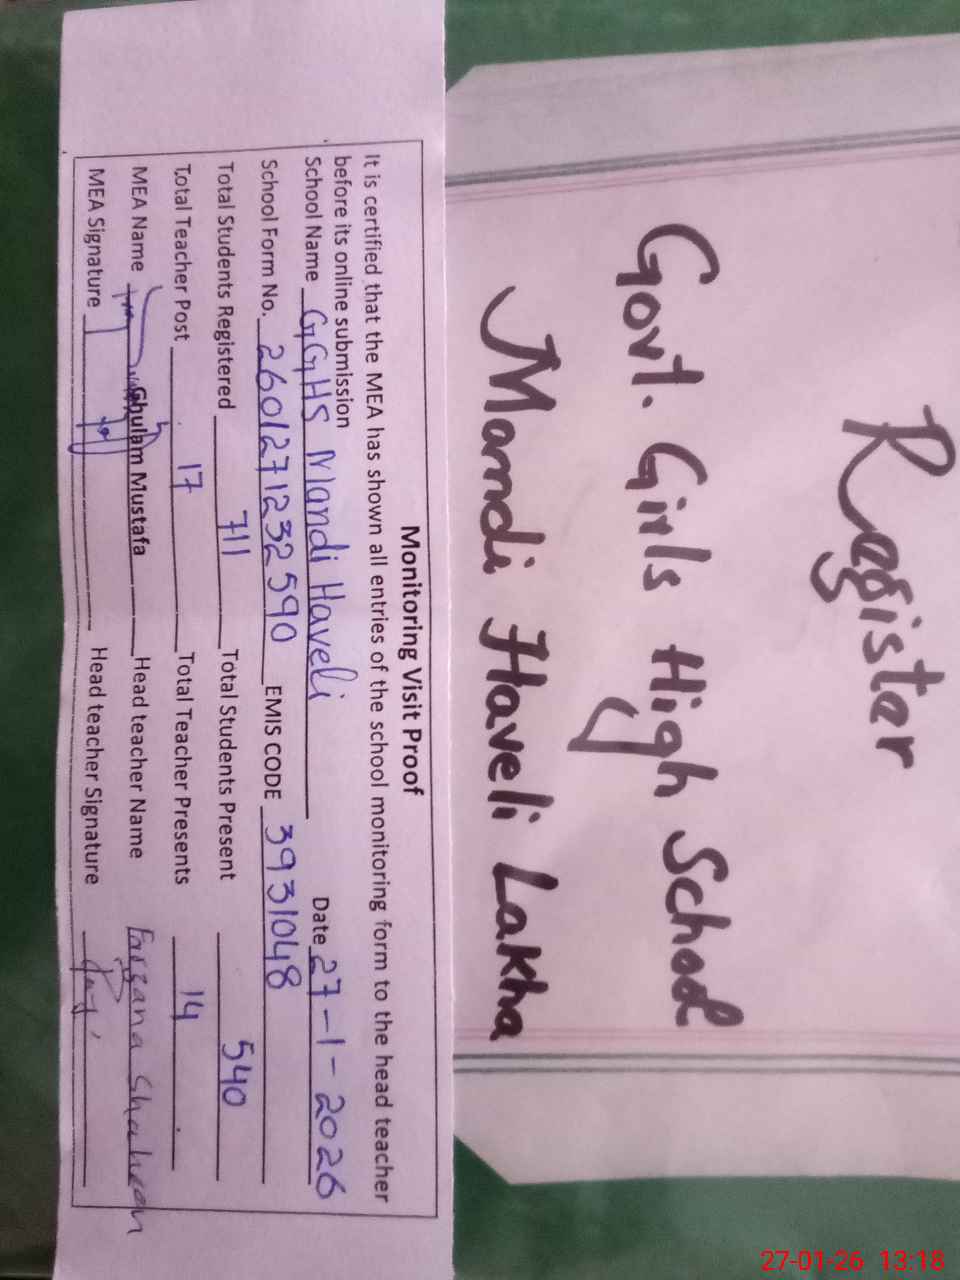 Register
Govt. Girls High School
Mandi Haveli Lakha
Monitoring Visit Proof
It is certified that the MEA has shown all entries of the school monitoring form to the head teacher
before its online submission
School Name GGHS Mandi Haveli Date 27-1-2026
School Form No. 2601271232590 EMIS CODE 3931048
Total Students Registered 711 Total Students Present 540
Total Teacher Post 17 Total Teacher Presents 14
MEA Name Ghulam Mustafa Head teacher Name Farzana Shaheen
MEA Signature Head teacher Signature
27-01-26 13:18